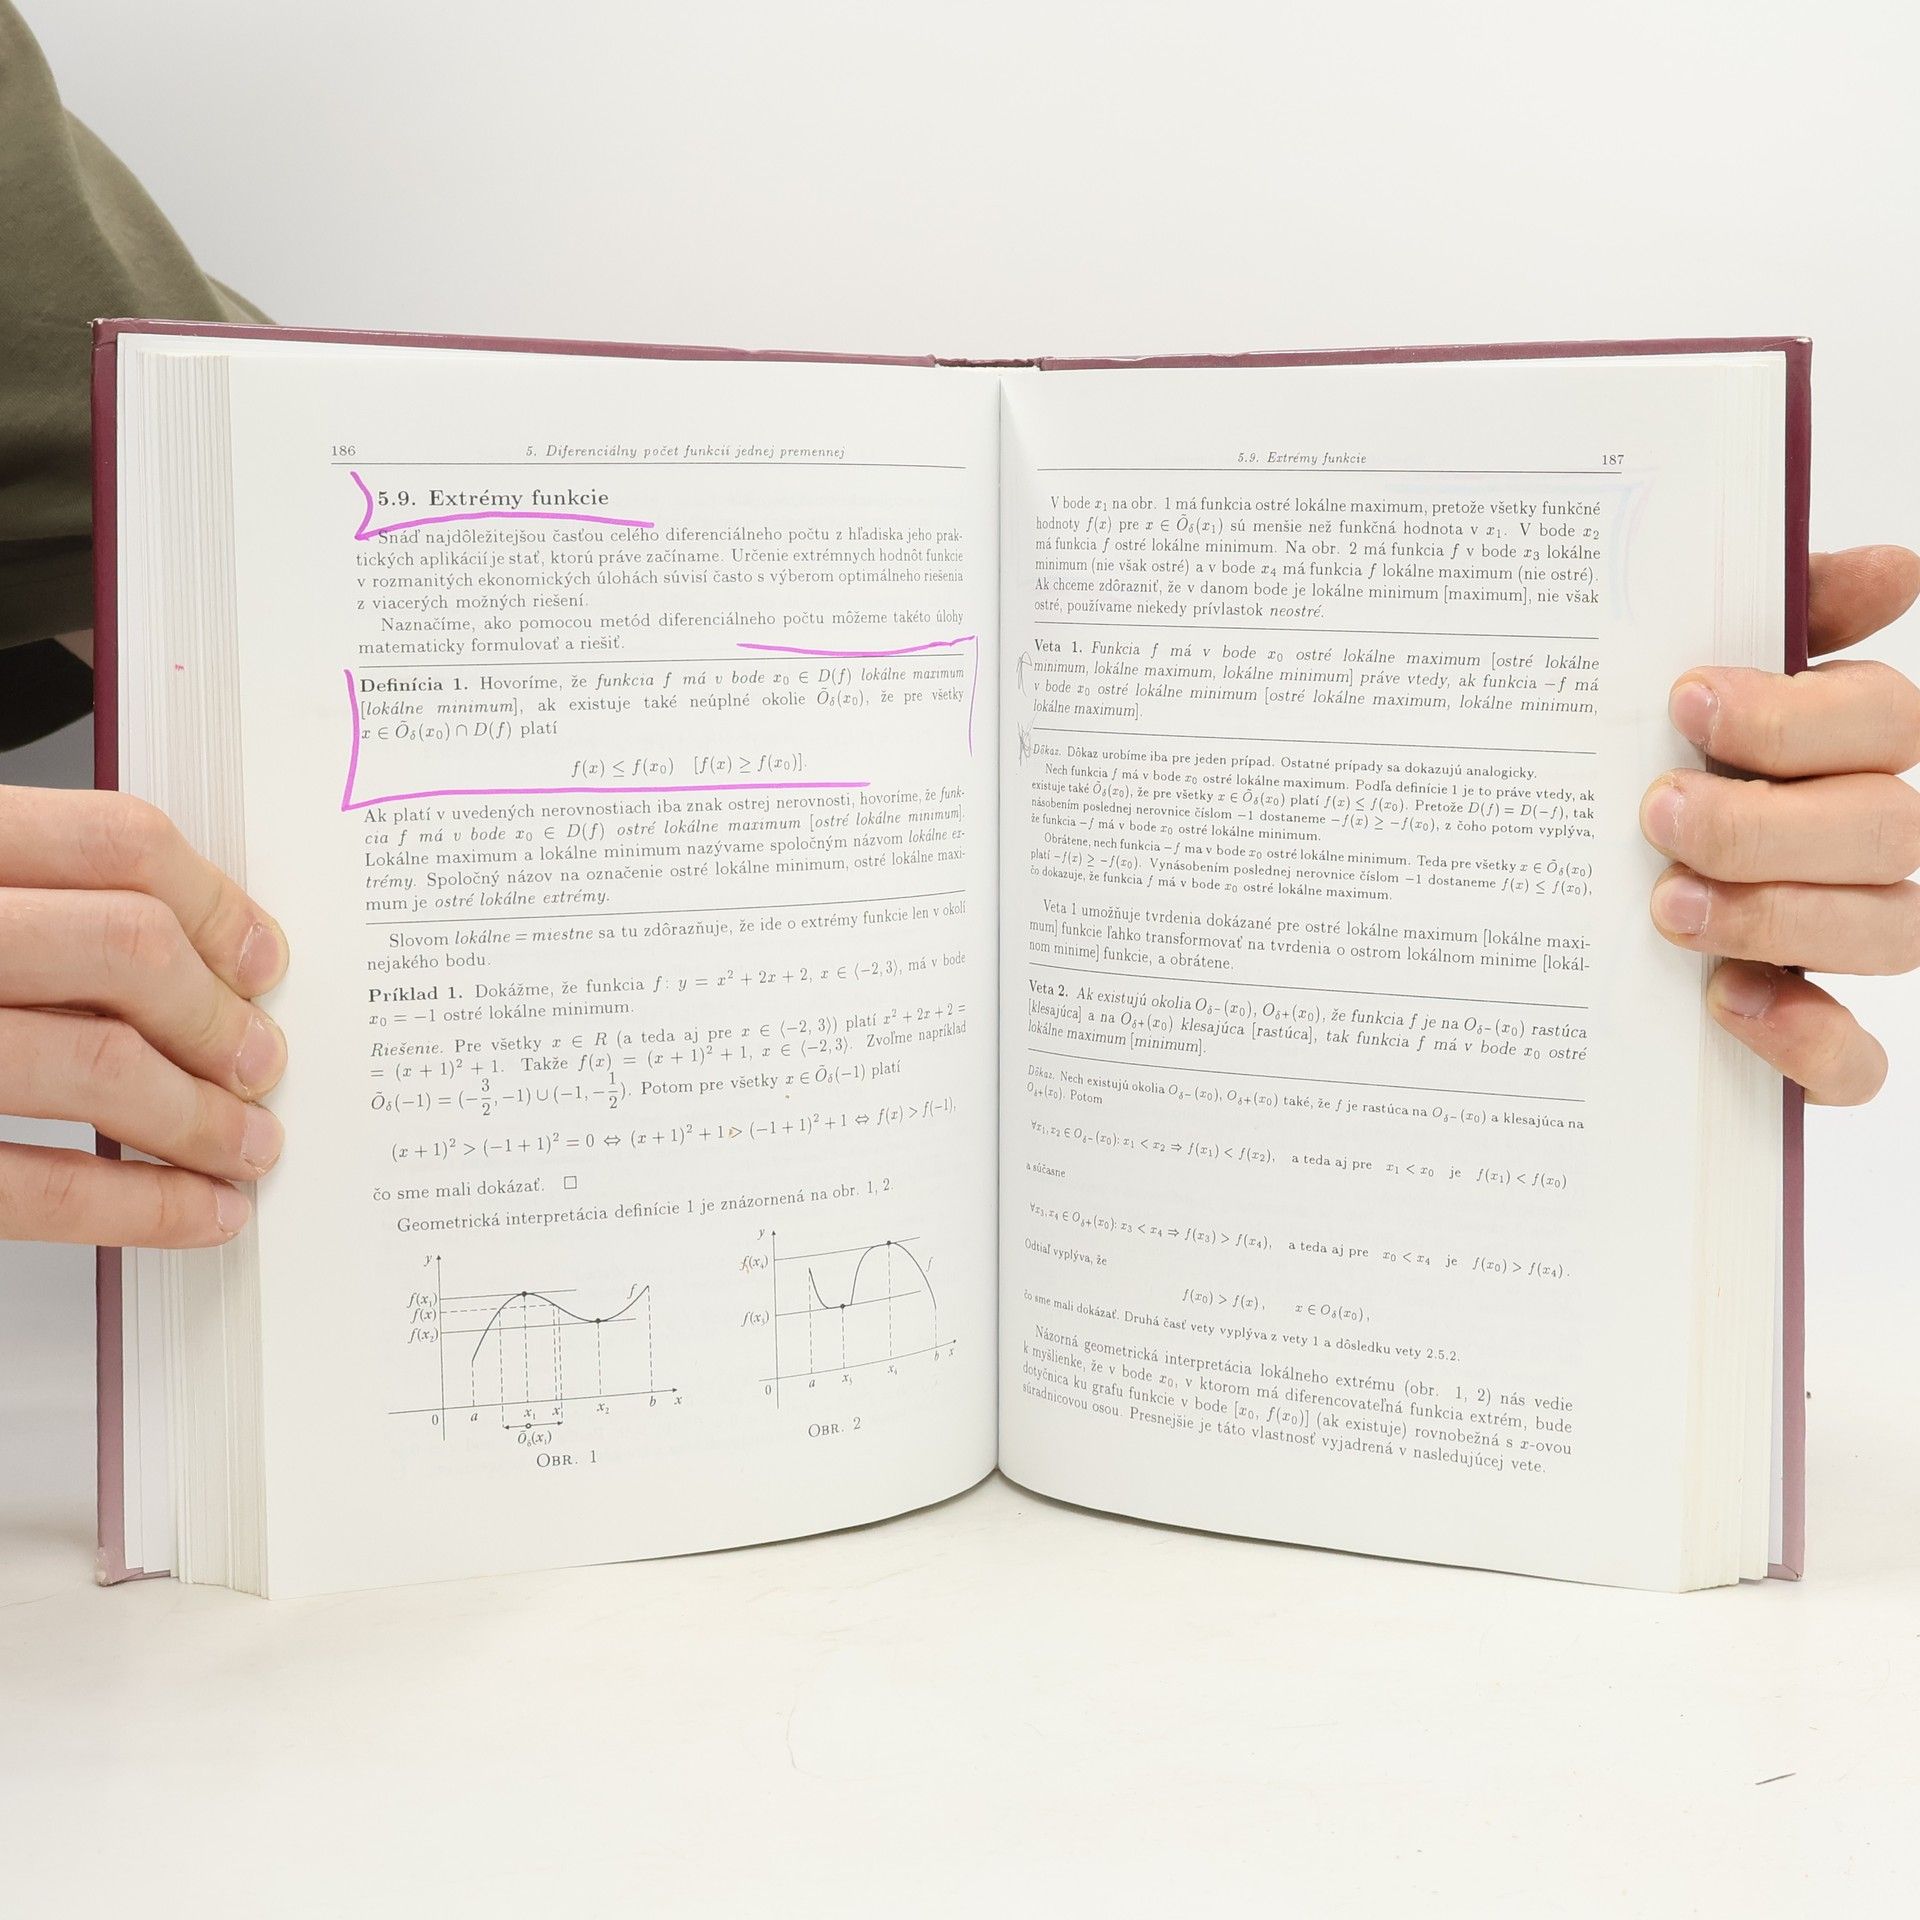 186
5. Diferenciálny počet funkcií jednej premennej
5.9. Extrémy funkcie
Snáď najdôležitejšou časťou celého diferenciálneho počtu z hľadiska jeho prak-
tických aplikácií je stať, ktorú práve začíname. Určenie extrémnych hodnôt funkcie
v rozmanitých ekonomických úlohách súvisí často s výberom optimálneho riešenia
z viacerých možných riešení.
Naznačíme, ako pomocou metód diferenciálneho počtu môžeme takéto úlohy
matematicky formulovať a riešiť.
Definícia 1. Hovoríme, že funkcia f má v bode x₀ ∈ D(f) lokálne maximum
[lokálne minimum], ak existuje také neúplné okolie Õδ(x₀), že pre všetky
x ∈ Õδ(x₀) ∩ D(f) platí
f(x) ≤ f(x₀) [f(x) ≥ f(x₀)].
Ak platí v uvedených nerovnostiach iba znak ostrej nerovnosti, hovoríme, že funk-
cia f má v bode x₀ ∈ D(f) ostré lokálne maximum [ostré lokálne minimum].
Lokálne maximum a lokálne minimum nazývame spoločným názvom lokálne ex-
trémy. Spoločný názov na označenie ostré lokálne minimum, ostré lokálne maxi-
mum je ostré lokálne extrémy.
Slovom lokálne = miestne sa tu zdôrazňuje, že ide o extrémy funkcie len v okolí
nejakého bodu.
Príklad 1. Dokážme, že funkcia f: y = x² + 2x + 2, x ∈ ⟨−2, 3⟩, má v bode
x₀ = −1 ostré lokálne minimum.
Riešenie. Pre všetky x ∈ R (a teda aj pre x ∈ ⟨−2, 3⟩) platí x² + 2x + 2 =
= (x + 1)² + 1. Takže f(x) = (x + 1)² + 1, x ∈ ⟨−2, 3⟩. Zvoľme napríklad
Õδ(−1) = (−3/2, −1) ∪ (−1, −1/2). Potom pre všetky x ∈ Õδ(−1) platí
(x + 1)² > (−1 + 1)² = 0 ⇔ (x + 1)² + 1 > (−1 + 1)² + 1 ⇔ f(x) > f(−1),
čo sme mali dokázať. □
Geometrická interpretácia definície 1 je znázornená na obr. 1, 2.
y
f(x₁)
f(x)
f(x₂)
f
0 a x₁ x x₂ b x
Õδ(x₁)
OBR. 1
y
f(x₄)
f(x₃)
f
0 a x₃ x₄ b x
OBR. 2
5.9. Extrémy funkcie
187
V bode x₁ na obr. 1 má funkcia ostré lokálne maximum, pretože všetky funkčné
hodnoty f(x) pre x ∈ Õδ(x₁) sú menšie než funkčná hodnota v x₁. V bode x₂
má funkcia f ostré lokálne minimum. Na obr. 2 má funkcia f v bode x₃ lokálne
minimum (nie však ostré) a v bode x₄ má funkcia f lokálne maximum (nie ostré).
Ak chceme zdôrazniť, že v danom bode je lokálne minimum [maximum], nie však
ostré, používame niekedy prívlastok neostré.
Veta 1. Funkcia f má v bode x₀ ostré lokálne maximum [ostré lokálne
minimum, lokálne maximum, lokálne minimum] práve vtedy, ak funkcia −f má
v bode x₀ ostré lokálne minimum [ostré lokálne maximum, lokálne minimum,
lokálne maximum].
Dôkaz. Dôkaz urobíme iba pre jeden prípad. Ostatné prípady sa dokazujú analogicky.
Nech funkcia f má v bode x₀ ostré lokálne maximum. Podľa definície 1 je to práve vtedy, ak
existuje také Õδ(x₀), že pre všetky x ∈ Õδ(x₀) platí f(x) ≤ f(x₀). Pretože D(f) = D(−f), tak
násobením poslednej nerovnice číslom −1 dostaneme −f(x) ≥ −f(x₀), z čoho potom vyplýva,
že funkcia −f má v bode x₀ ostré lokálne minimum.
Obrátene, nech funkcia −f ma v bode x₀ ostré lokálne minimum. Teda pre všetky x ∈ Õδ(x₀)
platí −f(x) ≥ −f(x₀). Vynásobením poslednej nerovnice číslom −1 dostaneme f(x) ≤ f(x₀),
čo dokazuje, že funkcia f má v bode x₀ ostré lokálne maximum.
Veta 1 umožňuje tvrdenia dokázané pre ostré lokálne maximum [lokálne maxi-
mum] funkcie ľahko transformovať na tvrdenia o ostrom lokálnom minime [lokál-
nom minime] funkcie, a obrátene.
Veta 2. Ak existujú okolia Oδ−(x₀), Oδ+(x₀), že funkcia f je na Oδ−(x₀) rastúca
[klesajúca] a na Oδ+(x₀) klesajúca [rastúca], tak funkcia f má v bode x₀ ostré
lokálne maximum [minimum].
Dôkaz. Nech existujú okolia Oδ−(x₀), Oδ+(x₀) také, že f je rastúca na Oδ−(x₀) a klesajúca na
Oδ+(x₀). Potom
∀x₁, x₂ ∈ Oδ−(x₀): x₁ < x₂ ⇒ f(x₁) < f(x₂), a teda aj pre x₁ < x₀ je f(x₁) < f(x₀)
a súčasne
∀x₃, x₄ ∈ Oδ+(x₀): x₃ < x₄ ⇒ f(x₃) > f(x₄), a teda aj pre x₀ < x₄ je f(x₀) > f(x₄).
Odtiaľ vyplýva, že
f(x₀) > f(x), x ∈ Oδ(x₀),
čo sme mali dokázať. Druhá časť vety vyplýva z vety 1 a dôsledku vety 2.5.2.
Názorná geometrická interpretácia lokálneho extrému (obr. 1, 2) nás vedie
k myšlienke, že v bode x₀, v ktorom má diferencovateľná funkcia extrém, bude
dotyčnica ku grafu funkcie v bode [x₀, f(x₀)] (ak existuje) rovnobežná s x-ovou
súradnicovou osou. Presnejšie je táto vlastnosť vyjadrená v nasledujúcej vete.